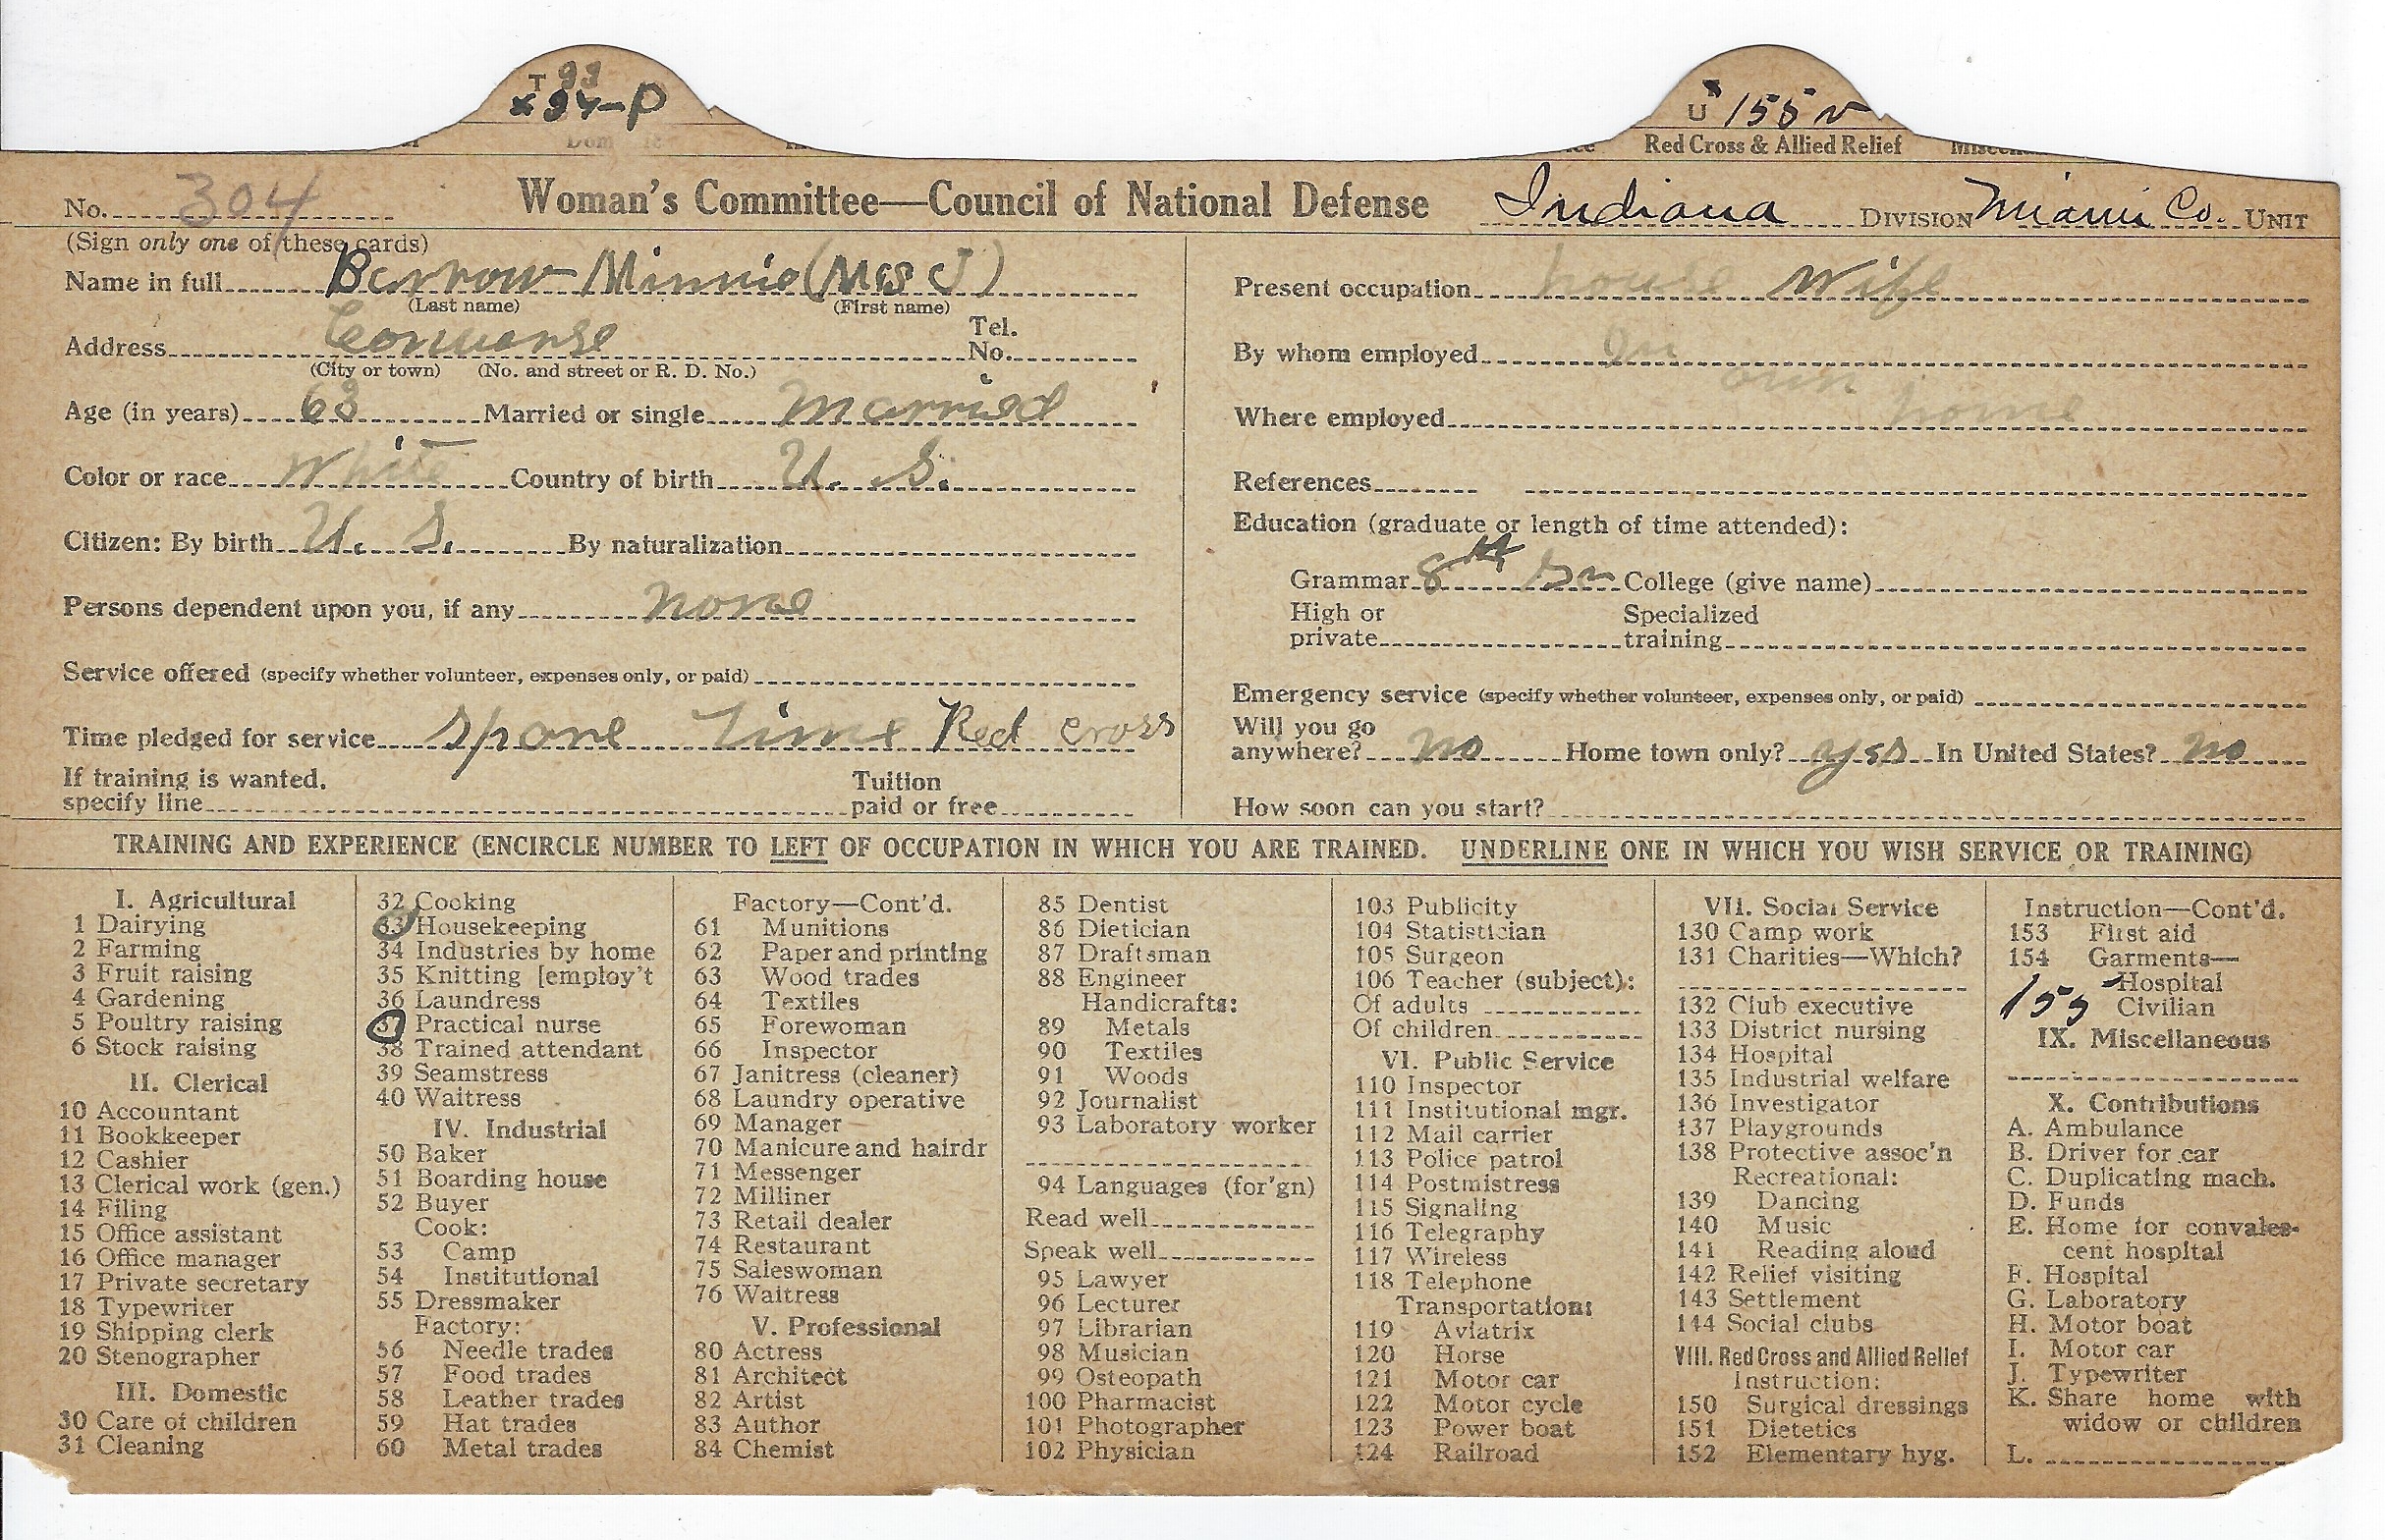 T 33
x 34-P
U 155 v
Red Cross & Allied Relief
No. 304
Woman's Committee—Council of National Defense
Indiana DIVISION Miami Co. UNIT
(Sign only one of these cards)
Name in full Minnie (Mrs J)
(Last name) (First name)
Address
Tel. No.
(City or town) (No. and street or R. D. No.)
Age (in years) 63 Married or single Married
Color or race White Country of birth U. S.
Citizen: By birth U. S. By naturalization
Persons dependent upon you, if any none
Service offered (specify whether volunteer, expenses only, or paid)
Time pledged for service spare Time Red cross
If training is wanted, specify line
Tuition paid or free
Present occupation house Wife
By whom employed In
own
Where employed home
References
Education (graduate or length of time attended):
Grammar 8th Gr College (give name)
High or private
Specialized training
Emergency service (specify whether volunteer, expenses only, or paid)
Will you go anywhere? no Home town only? yes In United States? no
How soon can you start?
TRAINING AND EXPERIENCE (ENCIRCLE NUMBER TO LEFT OF OCCUPATION IN WHICH YOU ARE TRAINED. UNDERLINE ONE IN WHICH YOU WISH SERVICE OR TRAINING)
I. Agricultural
1 Dairying
2 Farming
3 Fruit raising
4 Gardening
5 Poultry raising
6 Stock raising
II. Clerical
10 Accountant
11 Bookkeeper
12 Cashier
13 Clerical work (gen.)
14 Filing
15 Office assistant
16 Office manager
17 Private secretary
18 Typewriter
19 Shipping clerk
20 Stenographer
III. Domestic
30 Care of children
31 Cleaning
32 Cooking
33 Housekeeping
34 Industries by home
35 Knitting [employ't
36 Laundress
37 Practical nurse
38 Trained attendant
39 Seamstress
40 Waitress
IV. Industrial
50 Baker
51 Boarding house
52 Buyer
Cook:
53 Camp
54 Institutional
55 Dressmaker
Factory:
56 Needle trades
57 Food trades
58 Leather trades
59 Hat trades
60 Metal trades
Factory—Cont'd.
61 Munitions
62 Paper and printing
63 Wood trades
64 Textiles
65 Forewoman
66 Inspector
67 Janitress (cleaner)
68 Laundry operative
69 Manager
70 Manicure and hairdr
71 Messenger
72 Milliner
73 Retail dealer
74 Restaurant
75 Saleswoman
76 Waitress
V. Professional
80 Actress
81 Architect
82 Artist
83 Author
84 Chemist
85 Dentist
86 Dietician
87 Draftsman
88 Engineer
Handicrafts:
89 Metals
90 Textiles
91 Woods
92 Journalist
93 Laboratory worker
94 Languages (for'gn)
Read well
Speak well
95 Lawyer
96 Lecturer
97 Librarian
98 Musician
99 Osteopath
100 Pharmacist
101 Photographer
102 Physician
103 Publicity
104 Statistician
105 Surgeon
106 Teacher (subject):
Of adults
Of children
VI. Public Service
110 Inspector
111 Institutional mgr.
112 Mail carrier
113 Police patrol
114 Postmistress
115 Signaling
116 Telegraphy
117 Wireless
118 Telephone
Transportation:
119 Aviatrix
120 Horse
121 Motor car
122 Motor cycle
123 Power boat
124 Railroad
VII. Social Service
130 Camp work
131 Charities—Which?
132 Club executive
133 District nursing
134 Hospital
135 Industrial welfare
136 Investigator
137 Playgrounds
138 Protective assoc'n
Recreational:
139 Dancing
140 Music
141 Reading aloud
142 Relief visiting
143 Settlement
144 Social clubs
VIII. Red Cross and Allied Relief
Instruction:
150 Surgical dressings
151 Dietetics
152 Elementary hyg.
Instruction—Cont'd.
153 First aid
154 Garments—
Hospital
155 Civilian
IX. Miscellaneous
X. Contributions
A. Ambulance
B. Driver for car
C. Duplicating mach.
D. Funds
E. Home for convales-
cent hospital
F. Hospital
G. Laboratory
H. Motor boat
I. Motor car
J. Typewriter
K. Share home with
widow or children
L.